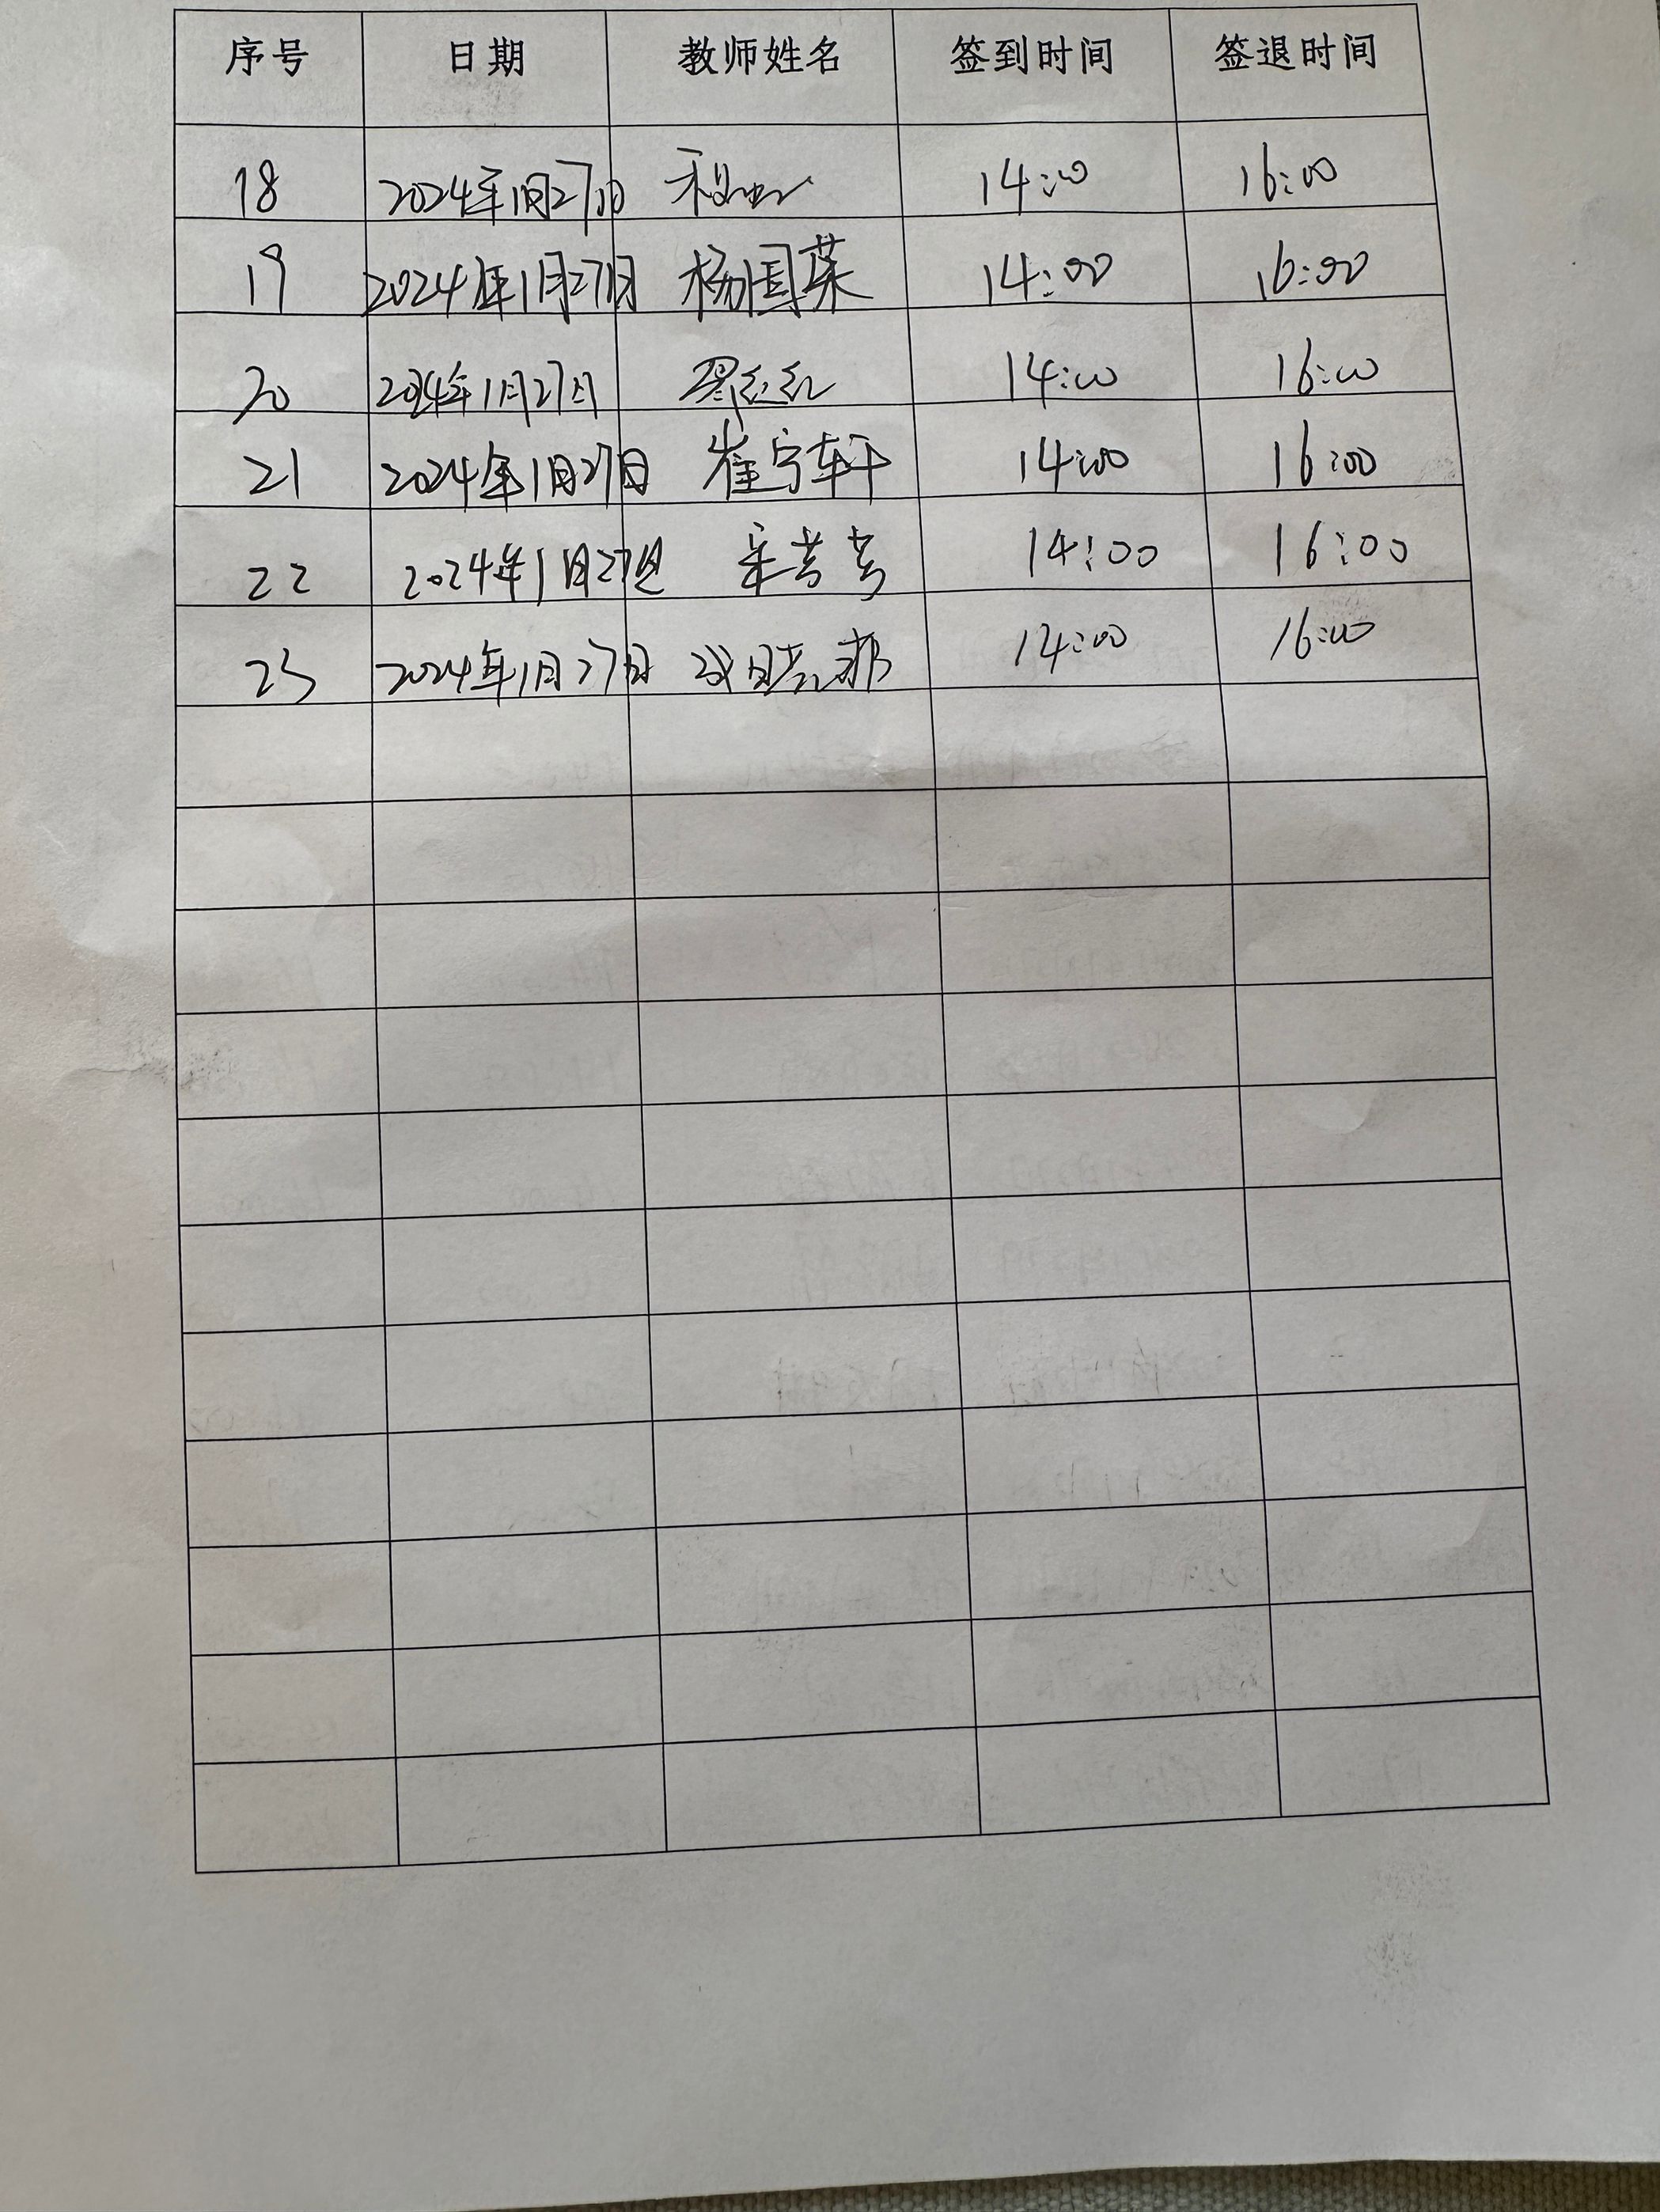 序号 日期 教师姓名 签到时间 签退时间
18 2024年1月27日 14:00 16:00
19 2024年1月27日 杨国菜 14:00 16:00
20 2024年1月27日 14:00 16:00
21 2024年1月27日 崔宁轩 14:00 16:00
22 2024年1月27日 14:00 16:00
23 2024年1月27日 14:00 16:00